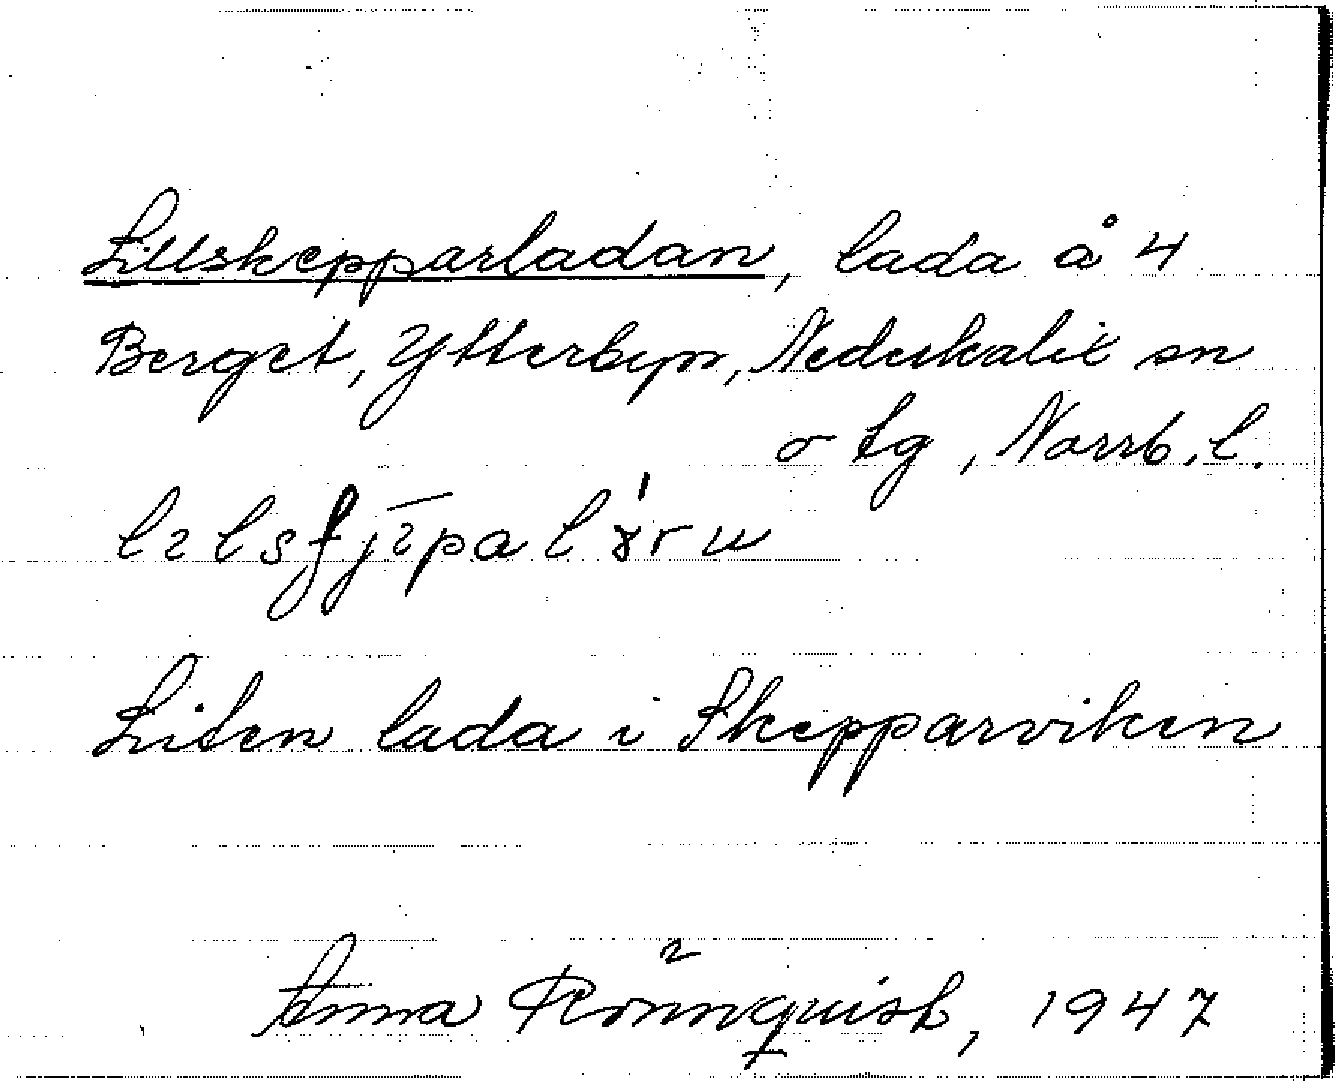 Lillskepparladan, lada å 4
Berget, Ytterbyn, Nederkalix sn
o tg, Norrb. l.
Liten lada i Skepparviken
Anna Rönnquist, 1947